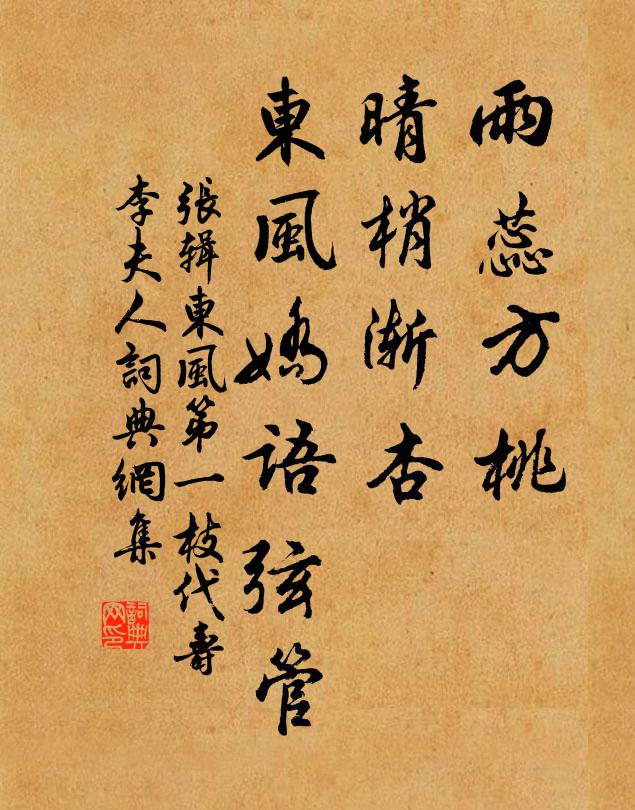 雨蕊方桃
晴梢漸杏
東風嬌語弦管
張輯東風第一枝代壽
李夫人詞典網集
詞典
网印